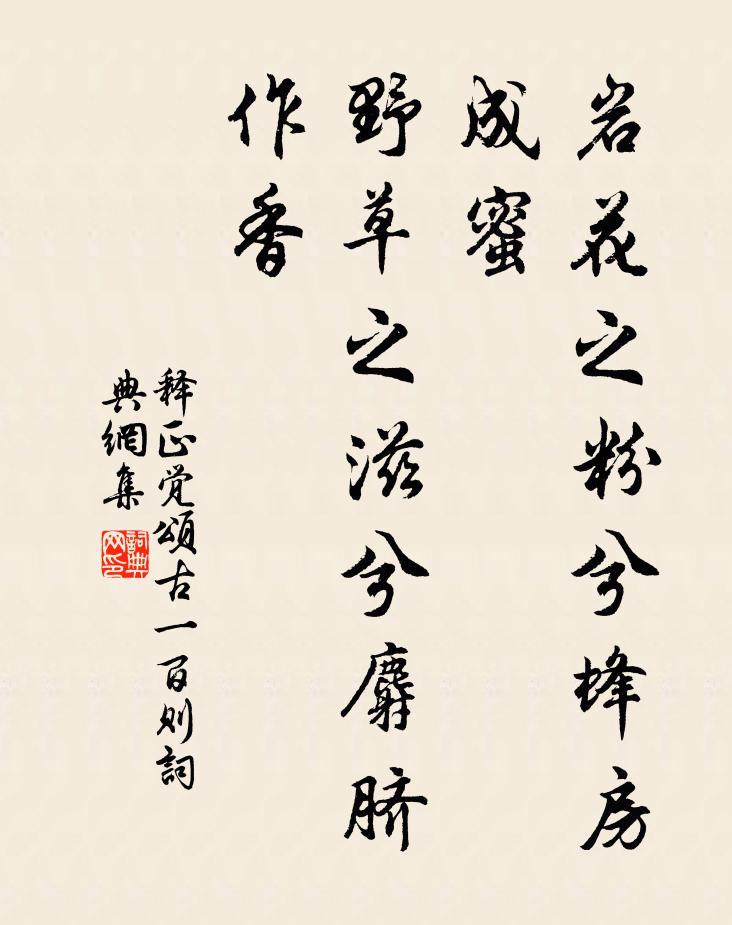 岩花之粉兮蜂房
成蜜
野草之滋兮麝脐
作香
释正觉颂古一百则詞
典網集
詞典
网印